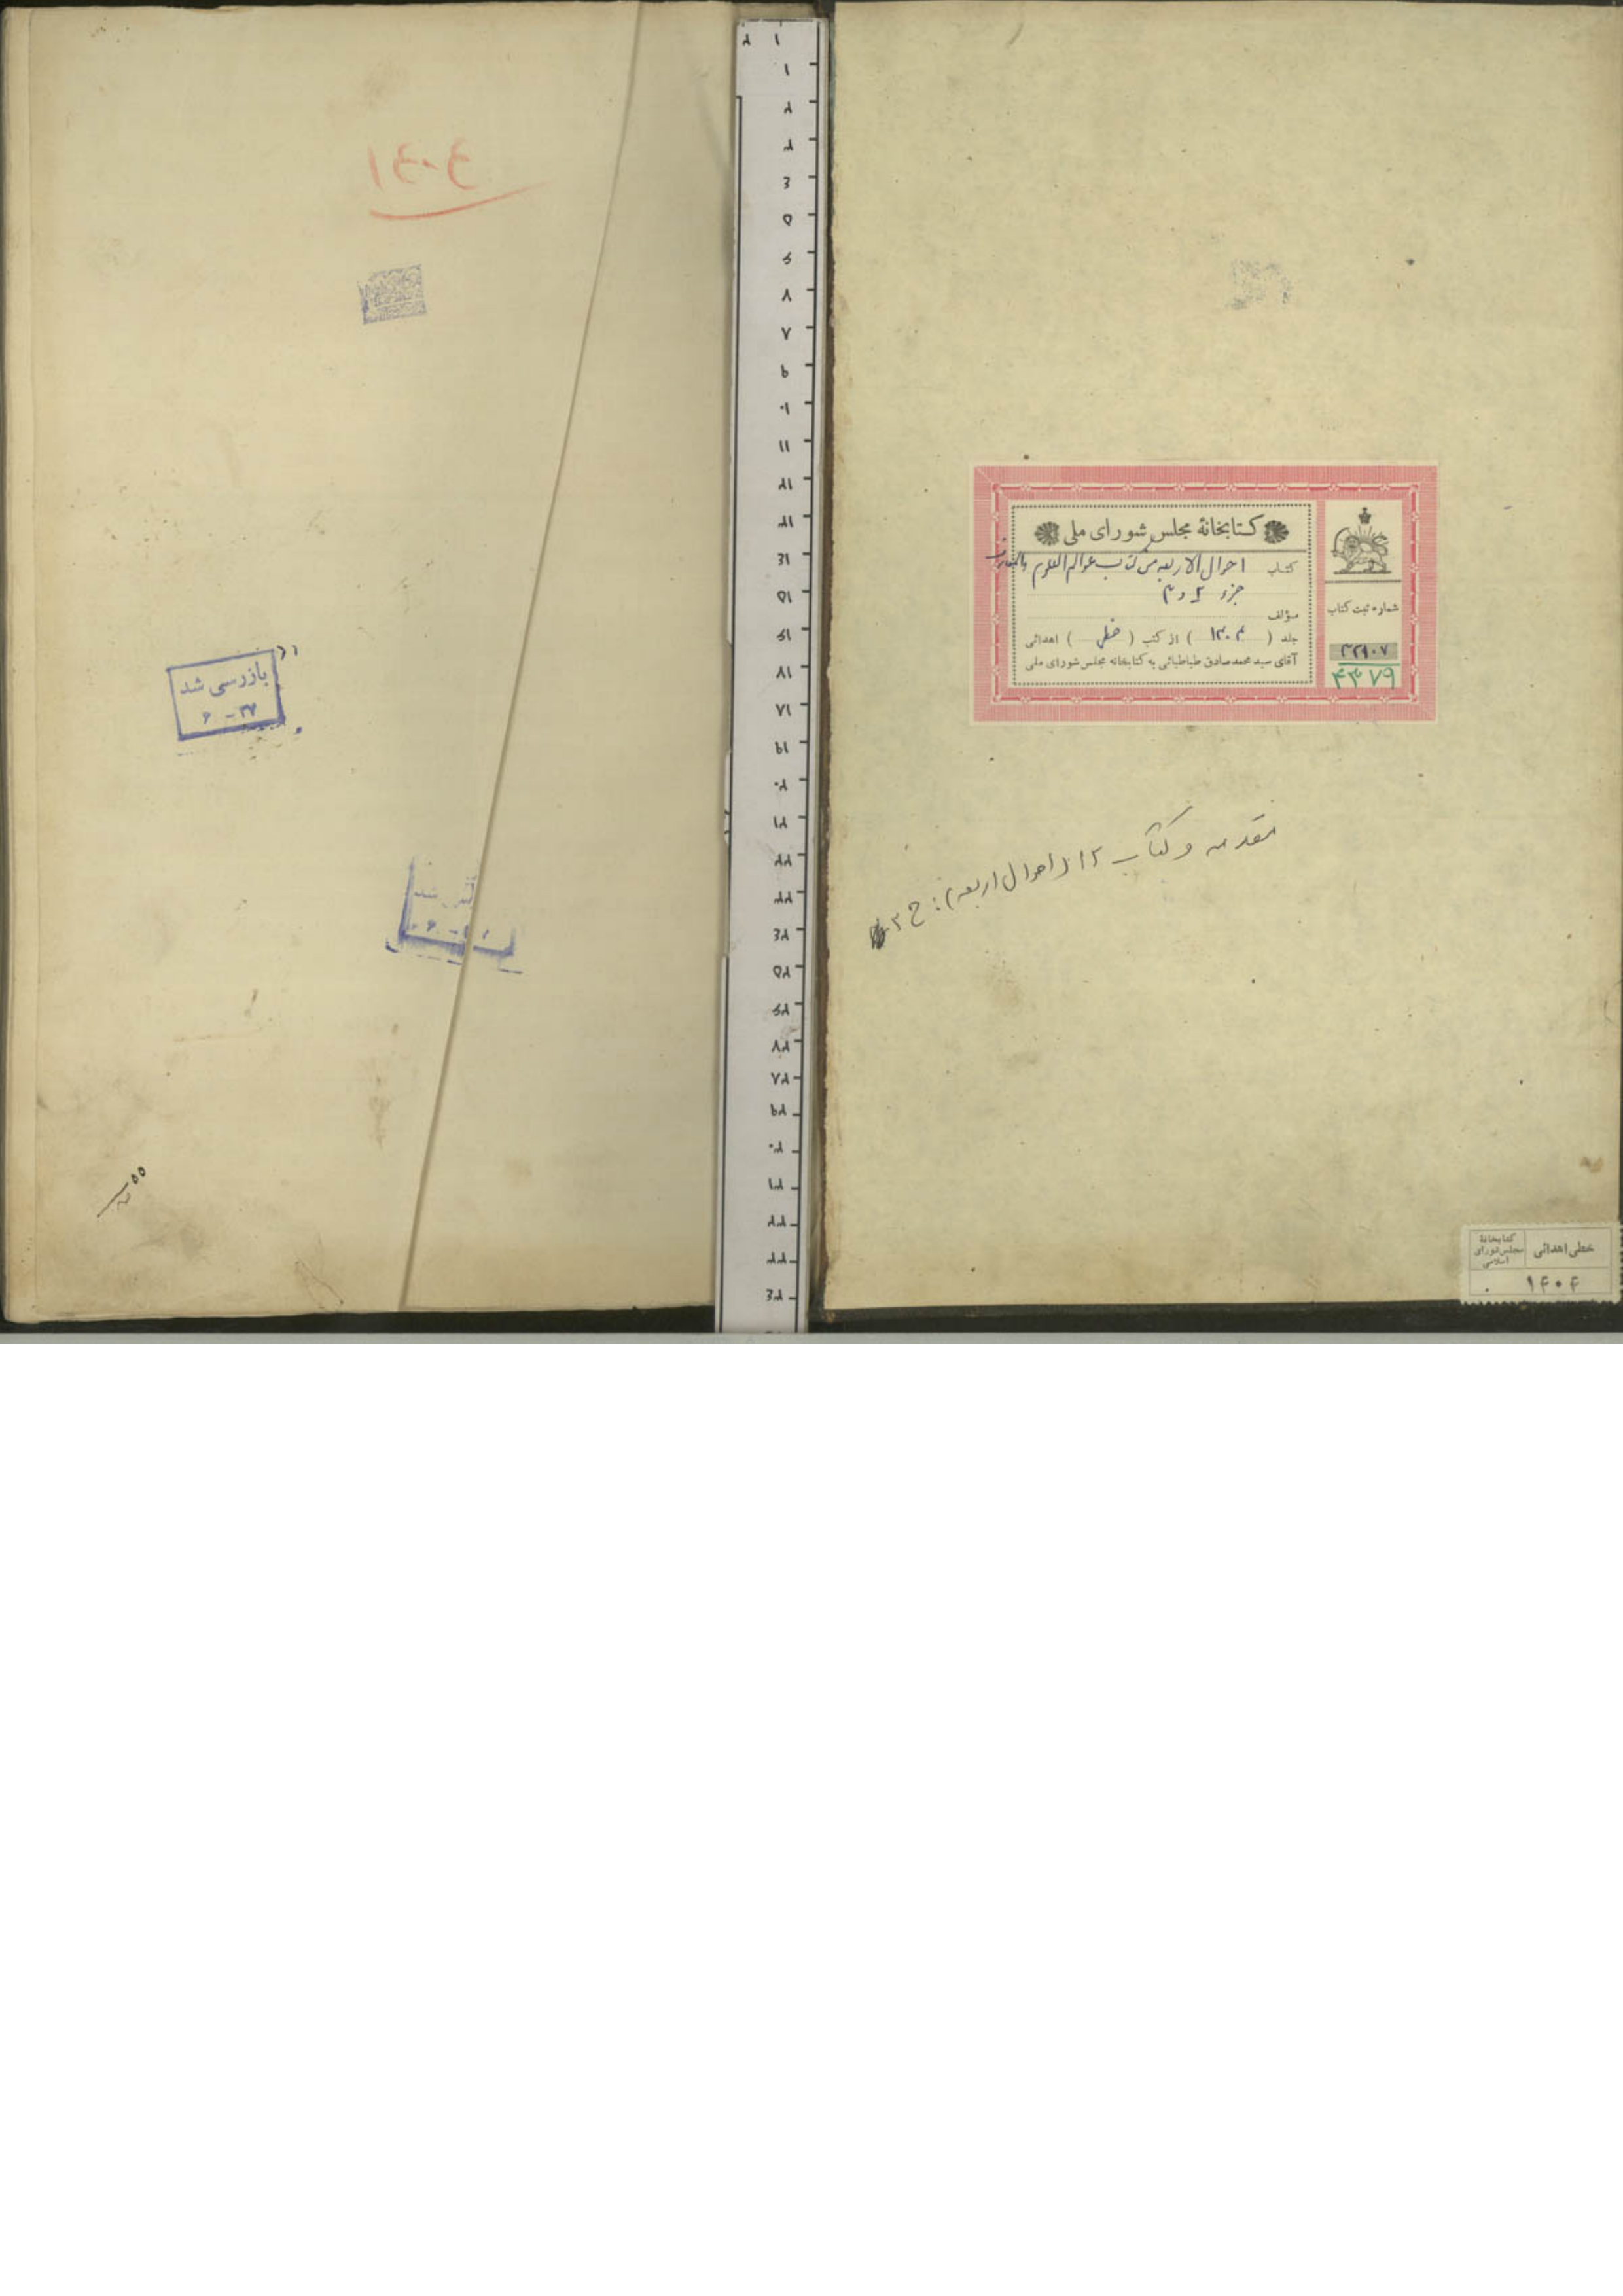 کتابخانهٔ مجلس شورای ملی
کتاب احوال الاربعه من کتاب عوالم العلوم والمعارف
جزء ۲ و ۳
مؤلف
جلد ( ۱۴۰۴ ) از کتب ( خطی ) اهدائی
آقای سید محمد صادق طباطبائی به کتابخانه مجلس شورای ملی
شماره ثبت کتاب
۳۲۹۰۷
۴۳۷۹
مقدمه و کتاب ۱۲ (احوال اربعه) : ج ۳
خطی اهدائی
کتابخانهٔ
مجلس شورای
اسلامی
۱۴۰۴
۱۴۰۴
بازرسی شد
۶ - ۳۷